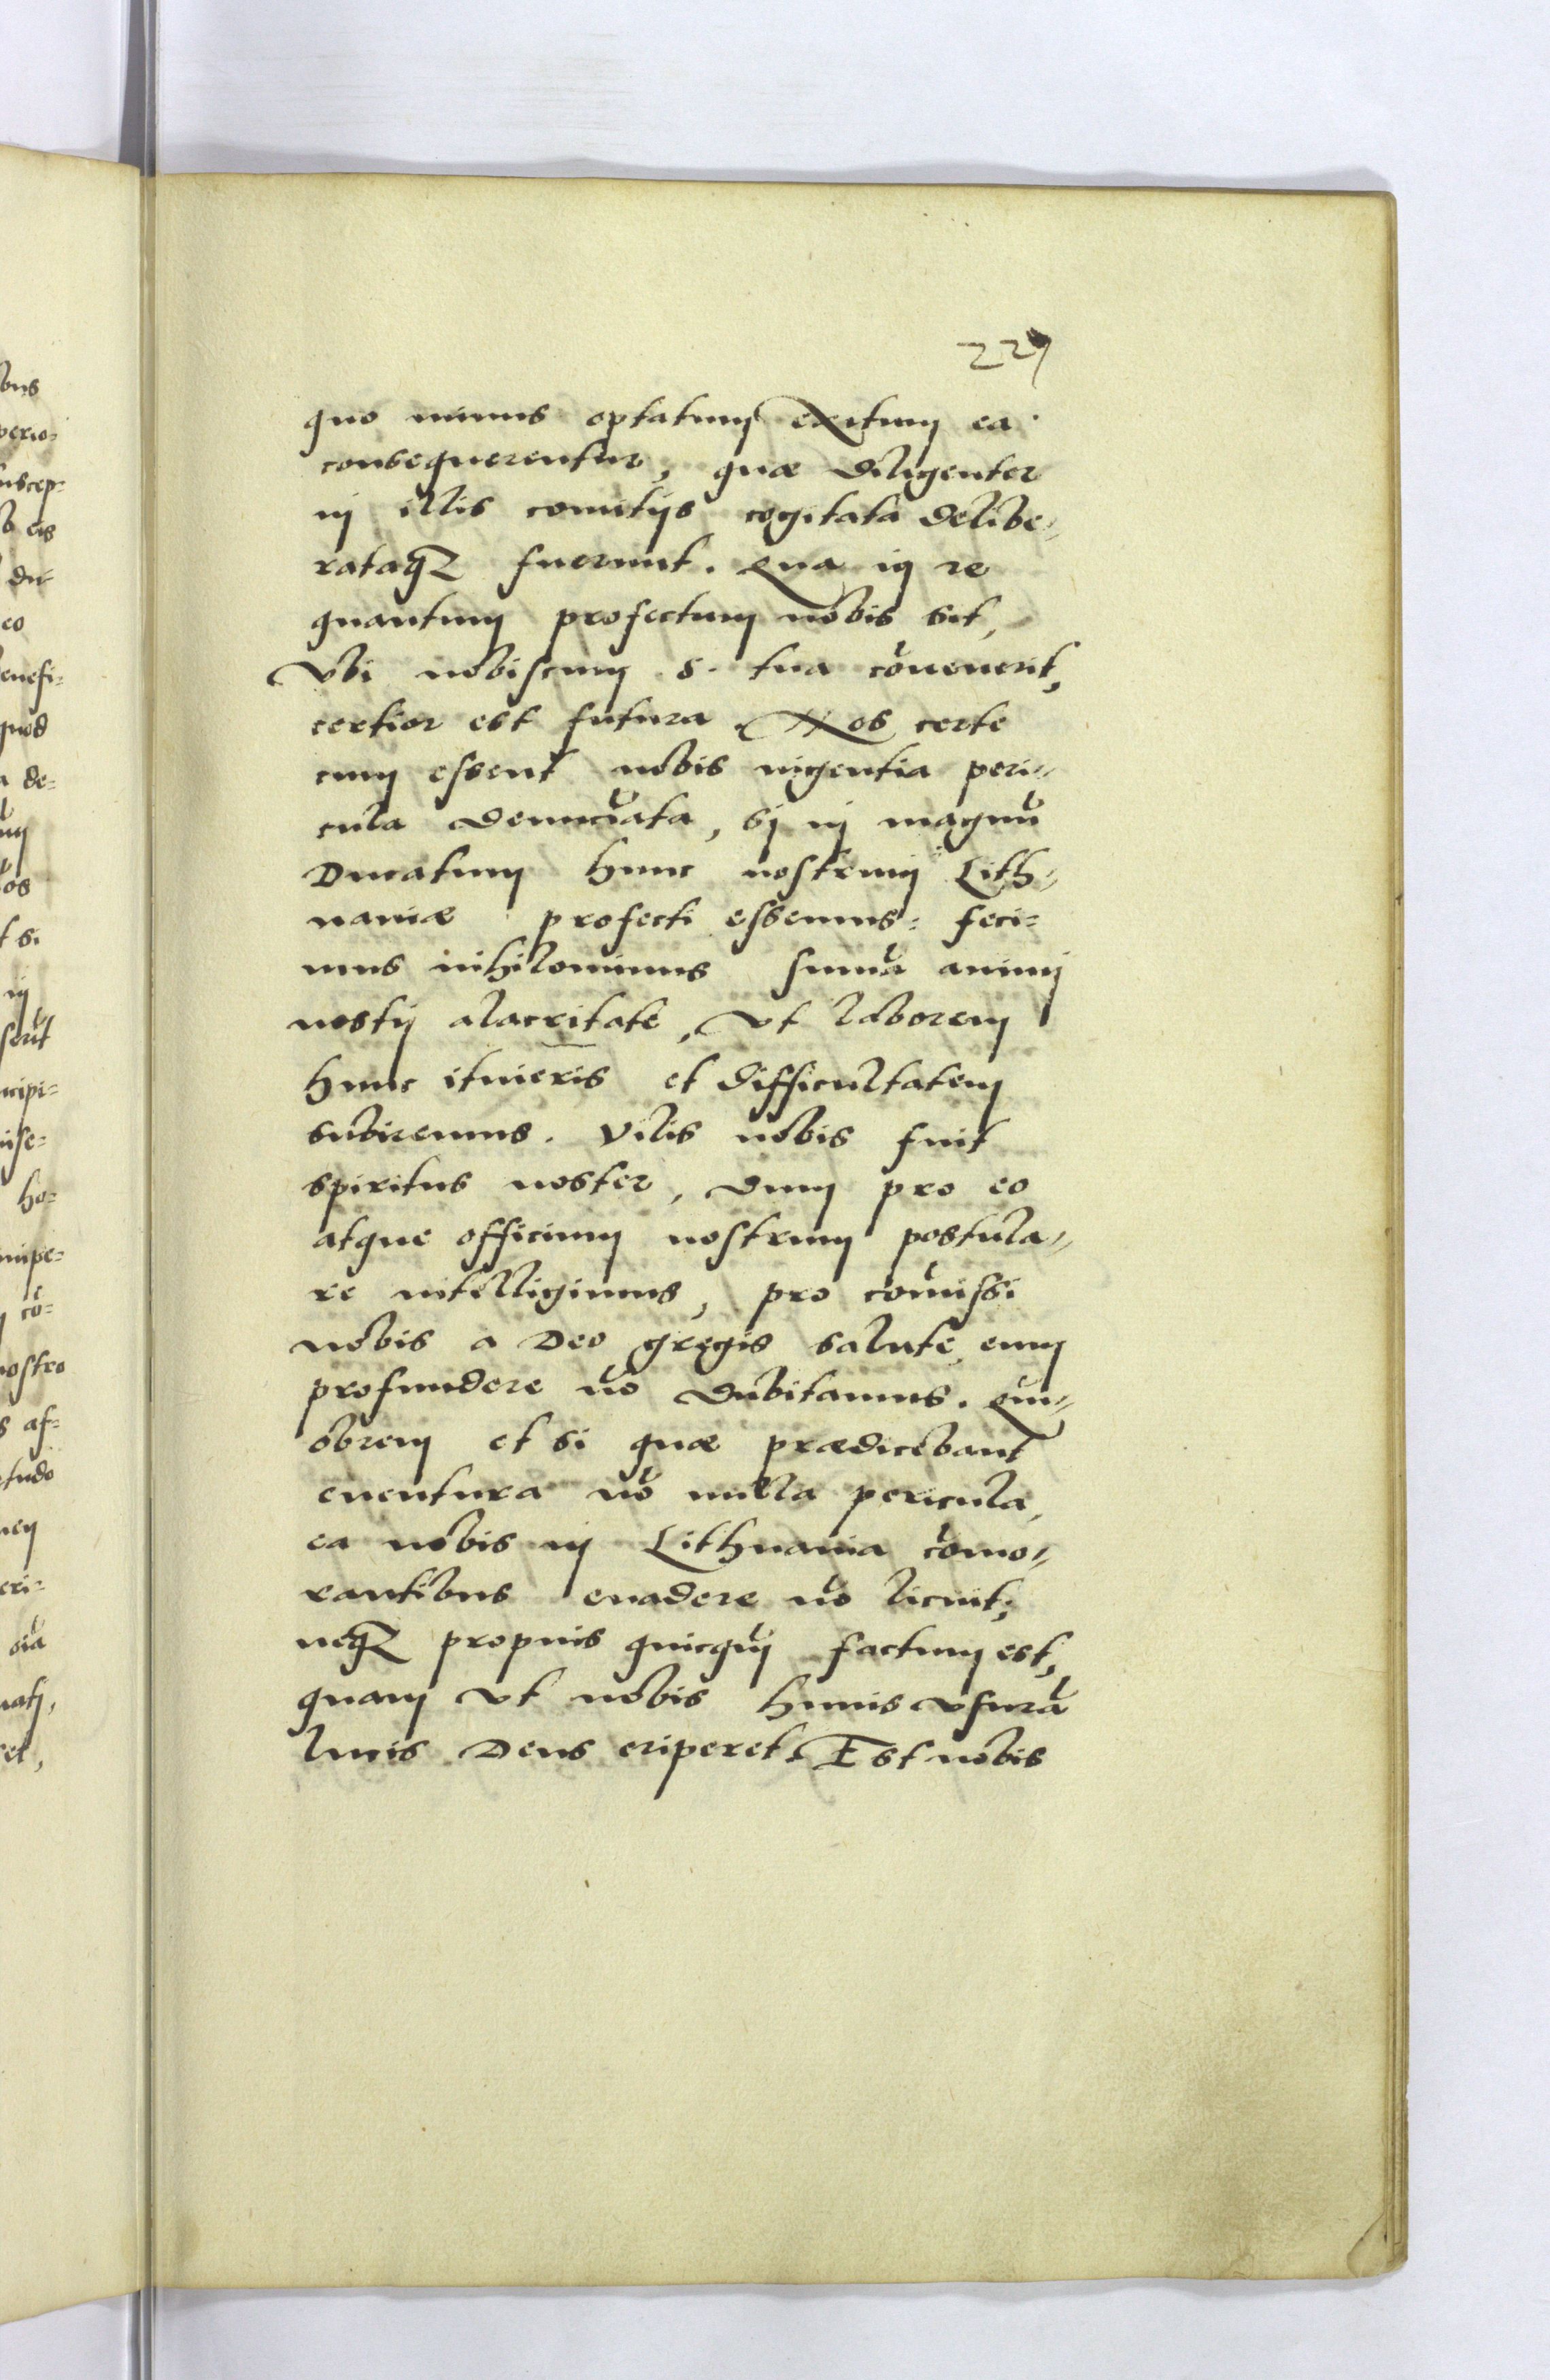 227
quo minus optatum exitum ea
consequerentur, quæ diligenter
in illis comitijs cogitata delibe-
rataqꝫ fuerunt. Qua in re
quantum profectum nobis sit,
vbi nobiscum S. tua cōuenerit,
certior est futura. Nos certe
cum essent nobis ingentia peri-
cula denunciata, si in magnū
Ducatum hunc nostrum Lith-
naniæ profecti essemus: feci-
mus nihilominus summa animi
nostri alacritate, vt laborem
hunc itineris et difficultatem
subiremus. Vilis nobis fuit
spiritus noster, dum pro eo
atque officium nostrum postula-
re intelligimus, pro cōmissi
nobis a Deo gregis salute eum
profundere nō dubitamus. Qui-
obrem et si quæ prædicebant
euentura nō nulla pericula,
ea nobis in Lithuania cōmo-
rantibus euadere nō licuit,
neqꝫ propius quicquā factum est,
quam vt nobis huius vsurā
lucis Deus eriperet. Est nobis